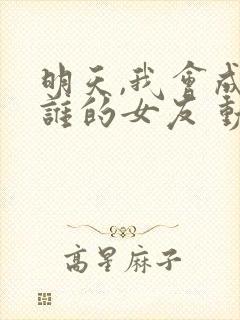 明天,我會成
誰的女友 動
高星麻子